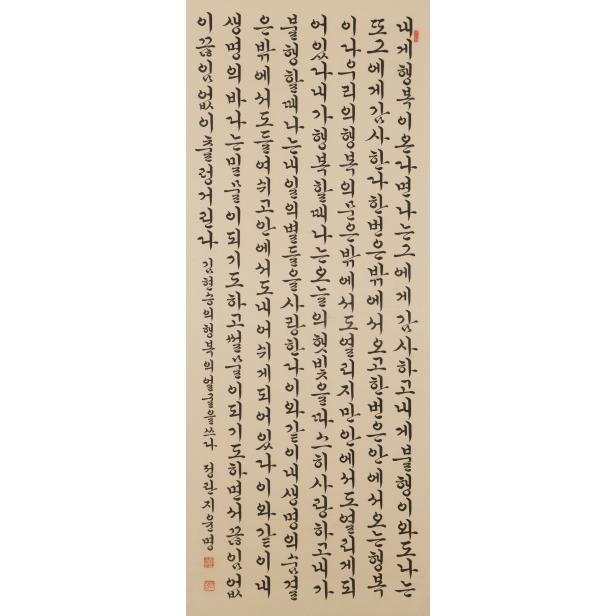 내게행복이온다면나는그에게감사하고내게불행이와도나는
또그에게감사한다한번은밖에서오고한번은안에서오는행복
이다우리의행복의문은밖에서도열리지만안에서도열리게되
어있다내가행복할때나는오늘의햇빛을따스히사랑하고내가
불행할때나는내일의별들을사랑한다이와같이내생명의숨결
은밖에서도들여쉬고안에서도내어쉬게되어있다이와같이내
생명의바다는밀물이되기도하고썰물이되기도하면서끊임없
이끊임없이출렁거린다 김현승의행복의얼굴을쓰다